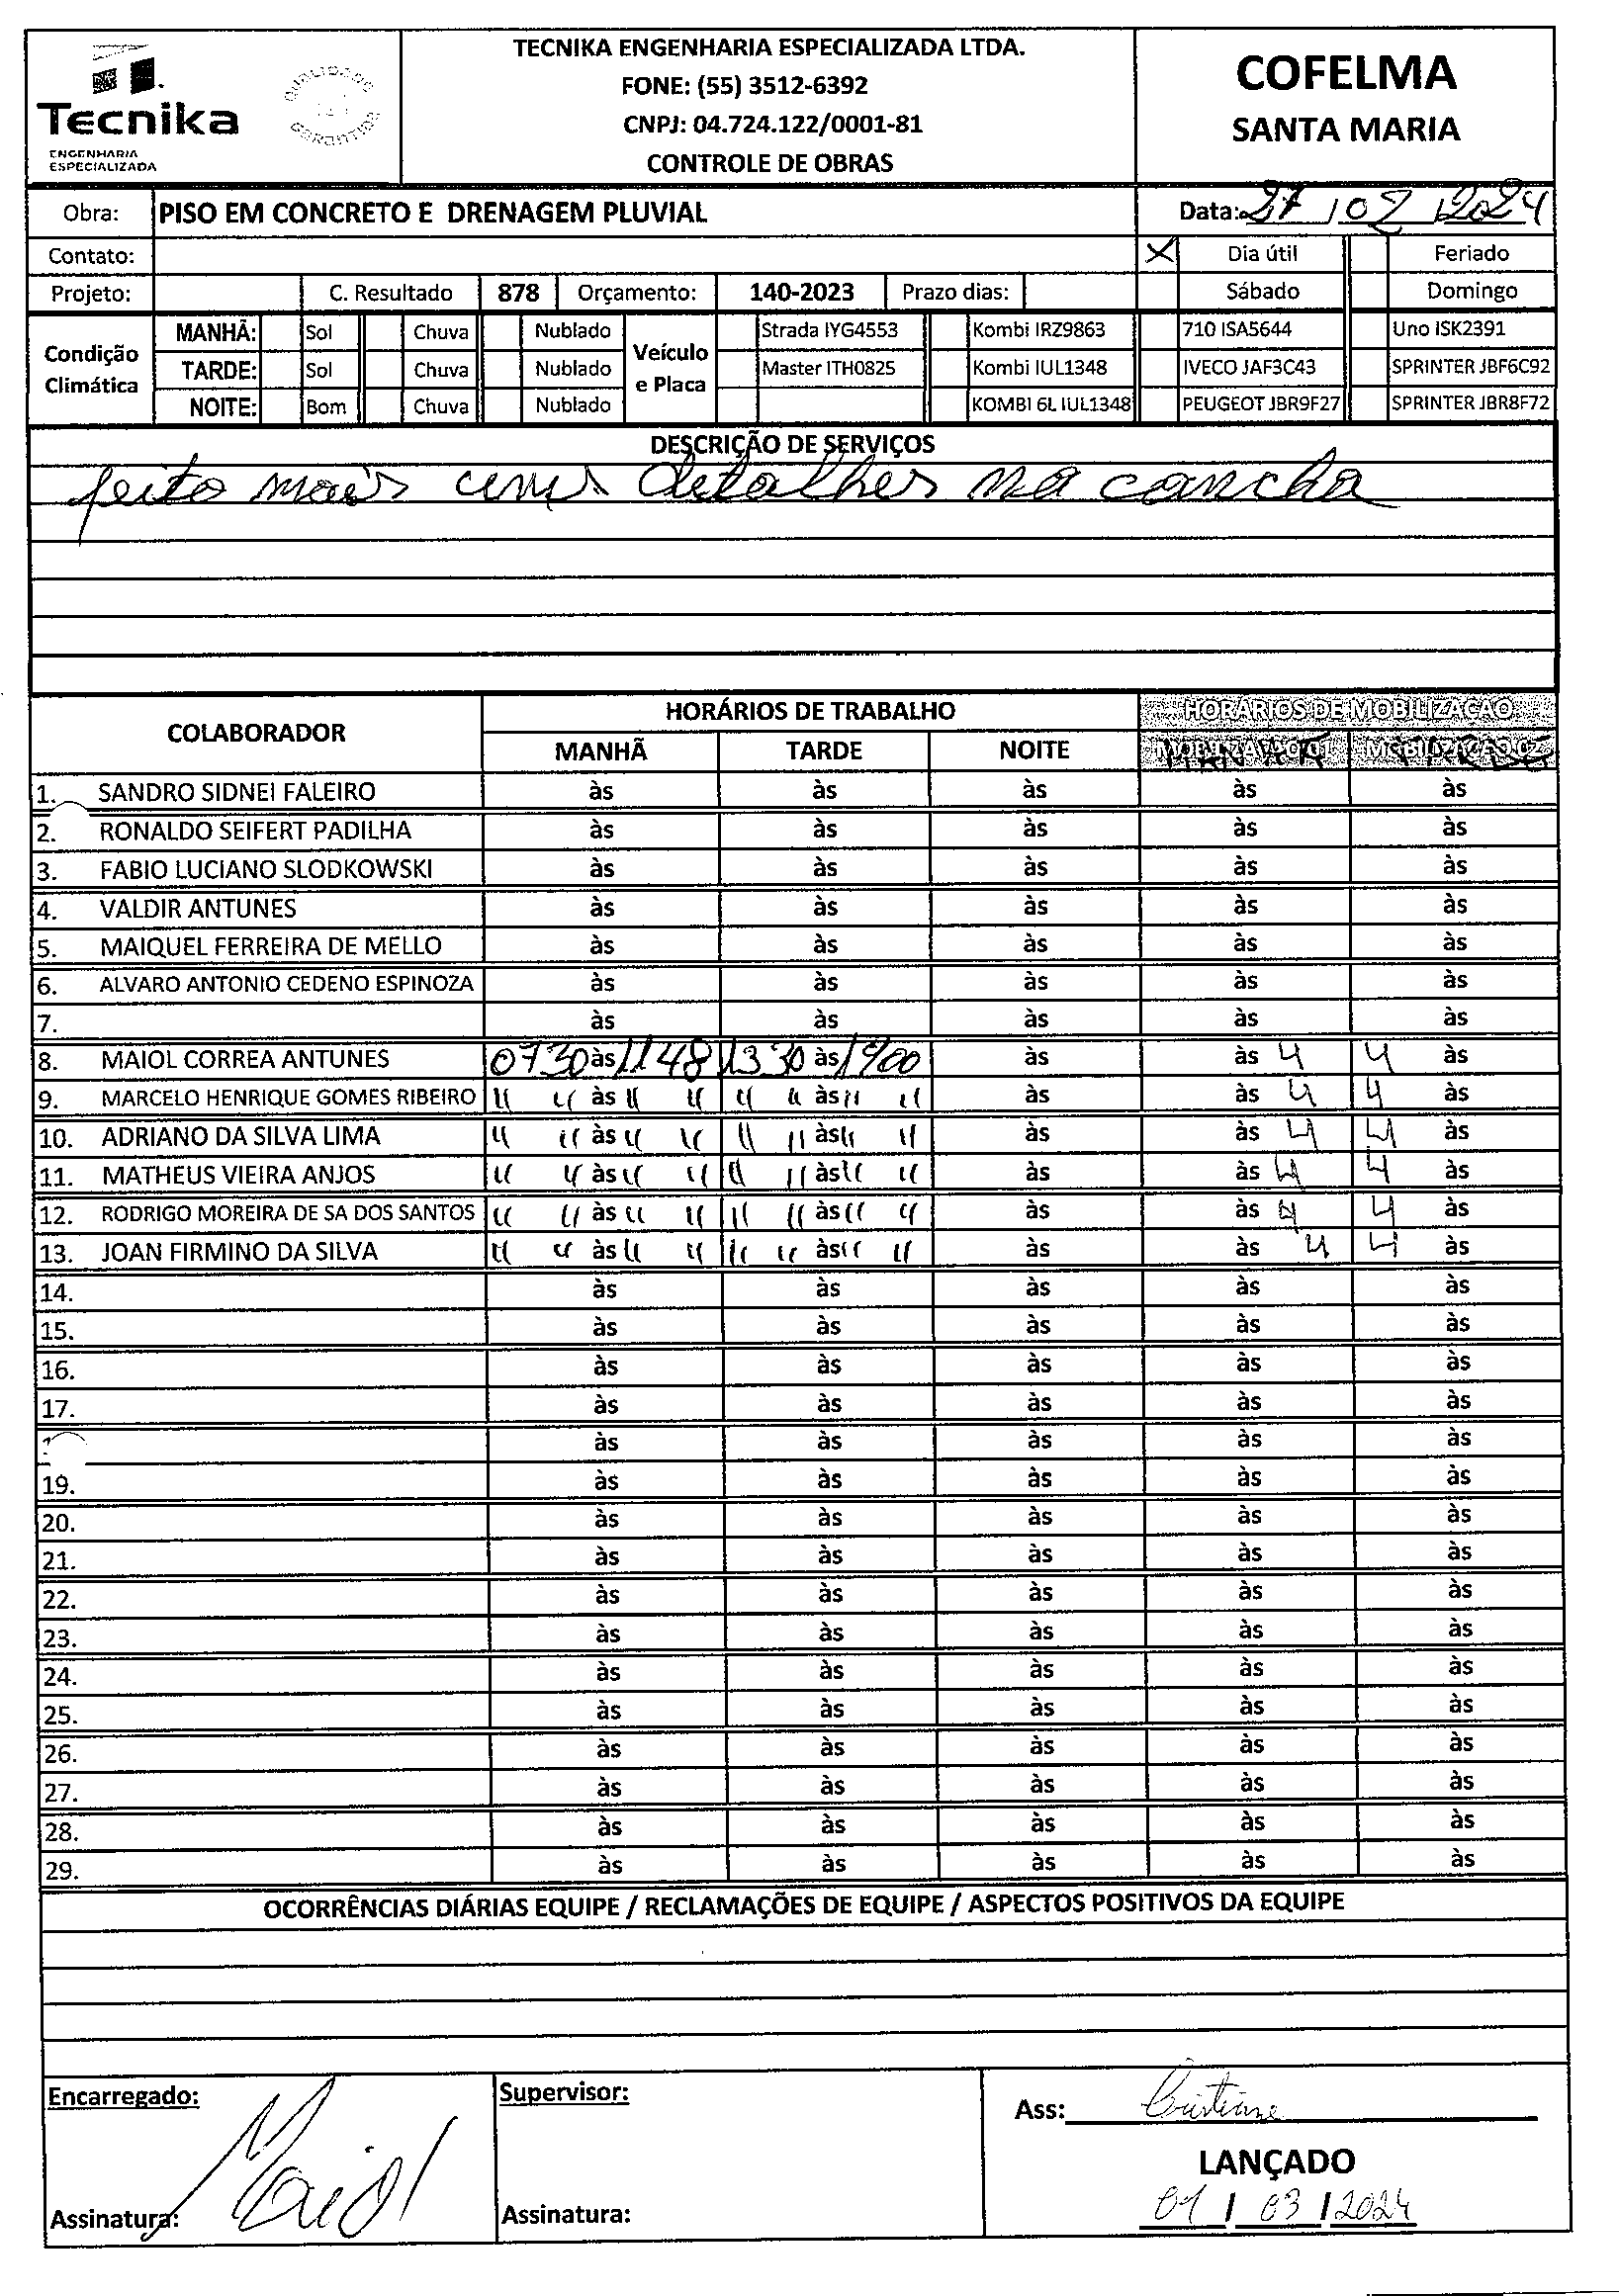 Tecnika
ENGENHARIA
ESPECIALIZADA
QUALIDADE
GARANTIDA
TECNIKA ENGENHARIA ESPECIALIZADA LTDA.
FONE: (55) 3512-6392
CNPJ: 04.724.122/0001-81
CONTROLE DE OBRAS
COFELMA
SANTA MARIA
Obra: PISO EM CONCRETO E DRENAGEM PLUVIAL Data: 27/02/2024
Contato: X Dia útil Feriado
Projeto: C. Resultado 878 Orçamento: 140-2023 Prazo dias: Sábado Domingo
Condição Climática
MANHÃ: Sol Chuva Nublado
TARDE: Sol Chuva Nublado
NOITE: Bom Chuva Nublado
Veículo e Placa
Strada IYG4553 Kombi IRZ9863 710 ISA5644 Uno ISK2391
Master ITH0825 Kombi IUL1348 IVECO JAF3C43 SPRINTER JBF6C92
KOMBI 6L IUL1348 PEUGEOT JBR9F27 SPRINTER JBR8F72
DESCRIÇÃO DE SERVIÇOS
feito mais uns detalhes na cancha
COLABORADOR HORÁRIOS DE TRABALHO HORÁRIOS DE MOBILIZAÇÃO
MANHÃ TARDE NOITE MOBILIZAÇÃO 01 MOBILIZAÇÃO 02
MANHÃ TARDE
1. SANDRO SIDNEI FALEIRO às às às às às
2. RONALDO SEIFERT PADILHA às às às às às
3. FABIO LUCIANO SLODKOWSKI às às às às às
4. VALDIR ANTUNES às às às às às
5. MAIQUEL FERREIRA DE MELLO às às às às às
6. ALVARO ANTONIO CEDENO ESPINOZA às às às às às
7. às às às às às
8. MAIOL CORREA ANTUNES 0730 às 1148 1330 às 1900 às às 4 4 às
9. MARCELO HENRIQUE GOMES RIBEIRO " " às " " " " às " " às às 4 4 às
10. ADRIANO DA SILVA LIMA " " às " " " " às " " às às 4 4 às
11. MATHEUS VIEIRA ANJOS " " às " " " " às " " às às 4 4 às
12. RODRIGO MOREIRA DE SA DOS SANTOS " " às " " " " às " " às às 4 4 às
13. JOAN FIRMINO DA SILVA " " às " " " " às " " às às 4 4 às
14. às às às às às
15. às às às às às
16. às às às às às
17. às às às às às
às às às às às
19. às às às às às
20. às às às às às
21. às às às às às
22. às às às às às
23. às às às às às
24. às às às às às
25. às às às às às
26. às às às às às
27. às às às às às
28. às às às às às
29. às às às às às
OCORRÊNCIAS DIÁRIAS EQUIPE / RECLAMAÇÕES DE EQUIPE / ASPECTOS POSITIVOS DA EQUIPE
Encarregado: Supervisor: Ass: Cristiane
Maiol
LANÇADO
Assinatura: Assinatura: 01/03/2024